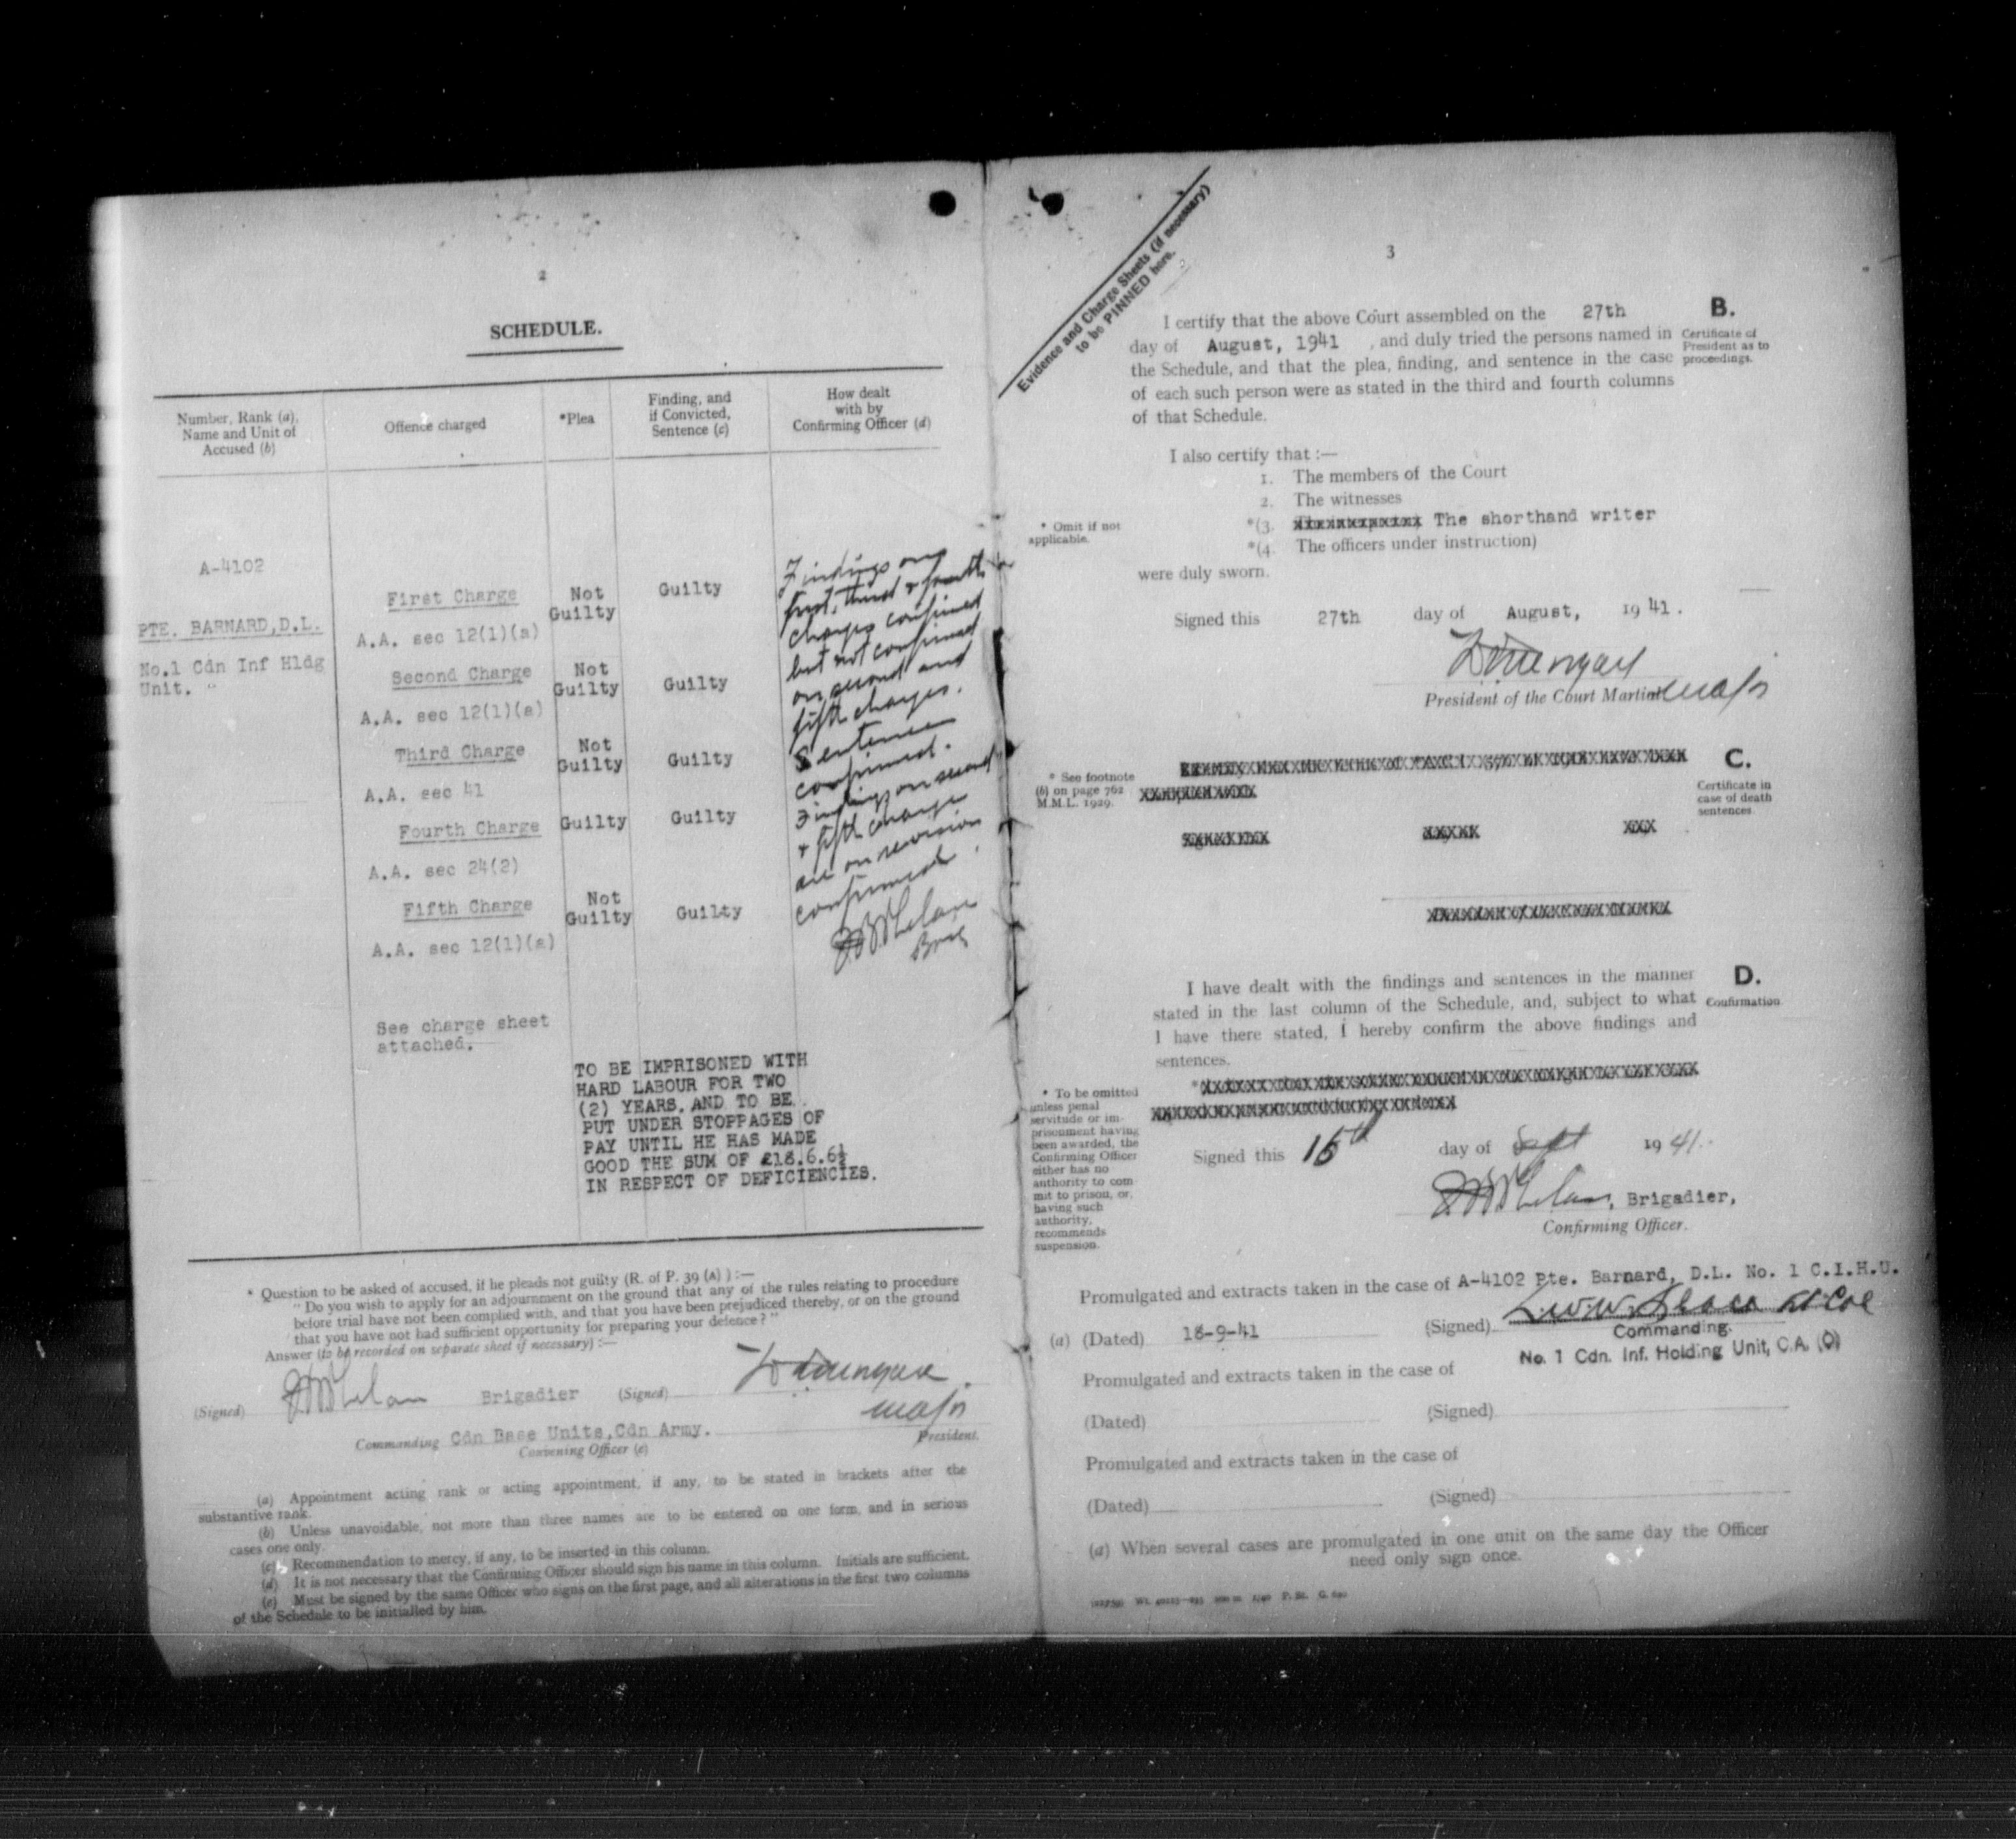 2
SCHEDULE.
Number, Rank (a),
Name and Unit of
Accused (b)
Offence charged
*Plea
Finding, and
if Convicted,
Sentence (c)
How dealt
with by
Confirming Officer (d)
A-4102
PTE. BARNARD,D.L.
No.1 Cdn Inf Hldg
Unit.
First Charge
A.A. sec 12(1)(a)
Not
Guilty
Guilty
Second Charge
A.A. sec 12(1)(a)
Not
Guilty
Guilty
Third Charge
A.A. sec 41
Not
Guilty
Guilty
Fourth Charge
A.A. sec 24(2)
Guilty
Guilty
Fifth Charge
A.A. sec 12(1)(a)
Not
Guilty
Guilty
See charge sheet
attached.
Findings on
first, third & fourth
charges confirmed
but not confirmed
on second and
fifth charges.
Sentence
confirmed.
Findings on second
& fifth charges
as on revision
confirmed.
Brig
TO BE IMPRISONED WITH
HARD LABOUR FOR TWO
(2) YEARS, AND TO BE
PUT UNDER STOPPAGES OF
PAY UNTIL HE HAS MADE
GOOD THE SUM OF £18.6.6½
IN RESPECT OF DEFICIENCIES.
* Question to be asked of accused, if he pleads not guilty (R. of P. 39 (A) ) :—
" Do you wish to apply for an adjournment on the ground that any of the rules relating to procedure
before trial have not been complied with, and that you have been prejudiced thereby, or on the ground
that you have not had sufficient opportunity for preparing your defence? "
Answer (to be recorded on separate sheet if necessary) :—
(Signed) Brigadier (Signed)
Major
Commanding Cdn Base Units,Cdn Army. President.
Convening Officer (e)
(a) Appointment acting rank or acting appointment, if any, to be stated in brackets after the
substantive rank.
(b) Unless unavoidable, not more than three names are to be entered on one form, and in serious
cases one only.
(c) Recommendation to mercy, if any, to be inserted in this column.
(d) It is not necessary that the Confirming Officer should sign his name in this column. Initials are sufficient.
(e) Must be signed by the same Officer who signs on the first page, and all alterations in the first two columns
of the Schedule to be initialled by him.
Evidence and Charge Sheets (if necessary)
to be PINNED here.
3
B.
Certificate of
President as to
proceedings.
I certify that the above Court assembled on the 27th
day of August, 1941 , and duly tried the persons named in
the Schedule, and that the plea, finding, and sentence in the case
of each such person were as stated in the third and fourth columns
of that Schedule.
I also certify that :—
1. The members of the Court
2. The witnesses
* Omit if not
applicable.
*(3. The shorthand writer
*(4. The officers under instruction)
were duly sworn.
Signed this 27th day of August, 1941.
President of the Court Martial Major
* See footnote
(b) on page 762
M.M.L. 1929.
C.
Certificate in
case of death
sentences.
D.
Confirmation.
I have dealt with the findings and sentences in the manner
stated in the last column of the Schedule, and, subject to what
I have there stated, I hereby confirm the above findings and
sentences.
* To be omitted
unless penal
servitude or im-
prisonment having
been awarded, the
Confirming Officer
either has no
authority to com-
mit to prison, or,
having such
authority,
recommends
suspension.
Signed this 15th day of Sept 1941.
, Brigadier,
Confirming Officer.
Promulgated and extracts taken in the case of A-4102 Pte. Barnard, D.L. No. 1 C.I.H.U.
(a) (Dated) 18-9-41 (Signed) Lt Col
Commanding.
No. 1 Cdn. Inf. Holding Unit, C.A. (O)
Promulgated and extracts taken in the case of
(Dated) (Signed)
Promulgated and extracts taken in the case of
(Dated) (Signed)
(a) When several cases are promulgated in one unit on the same day the Officer
need only sign once.